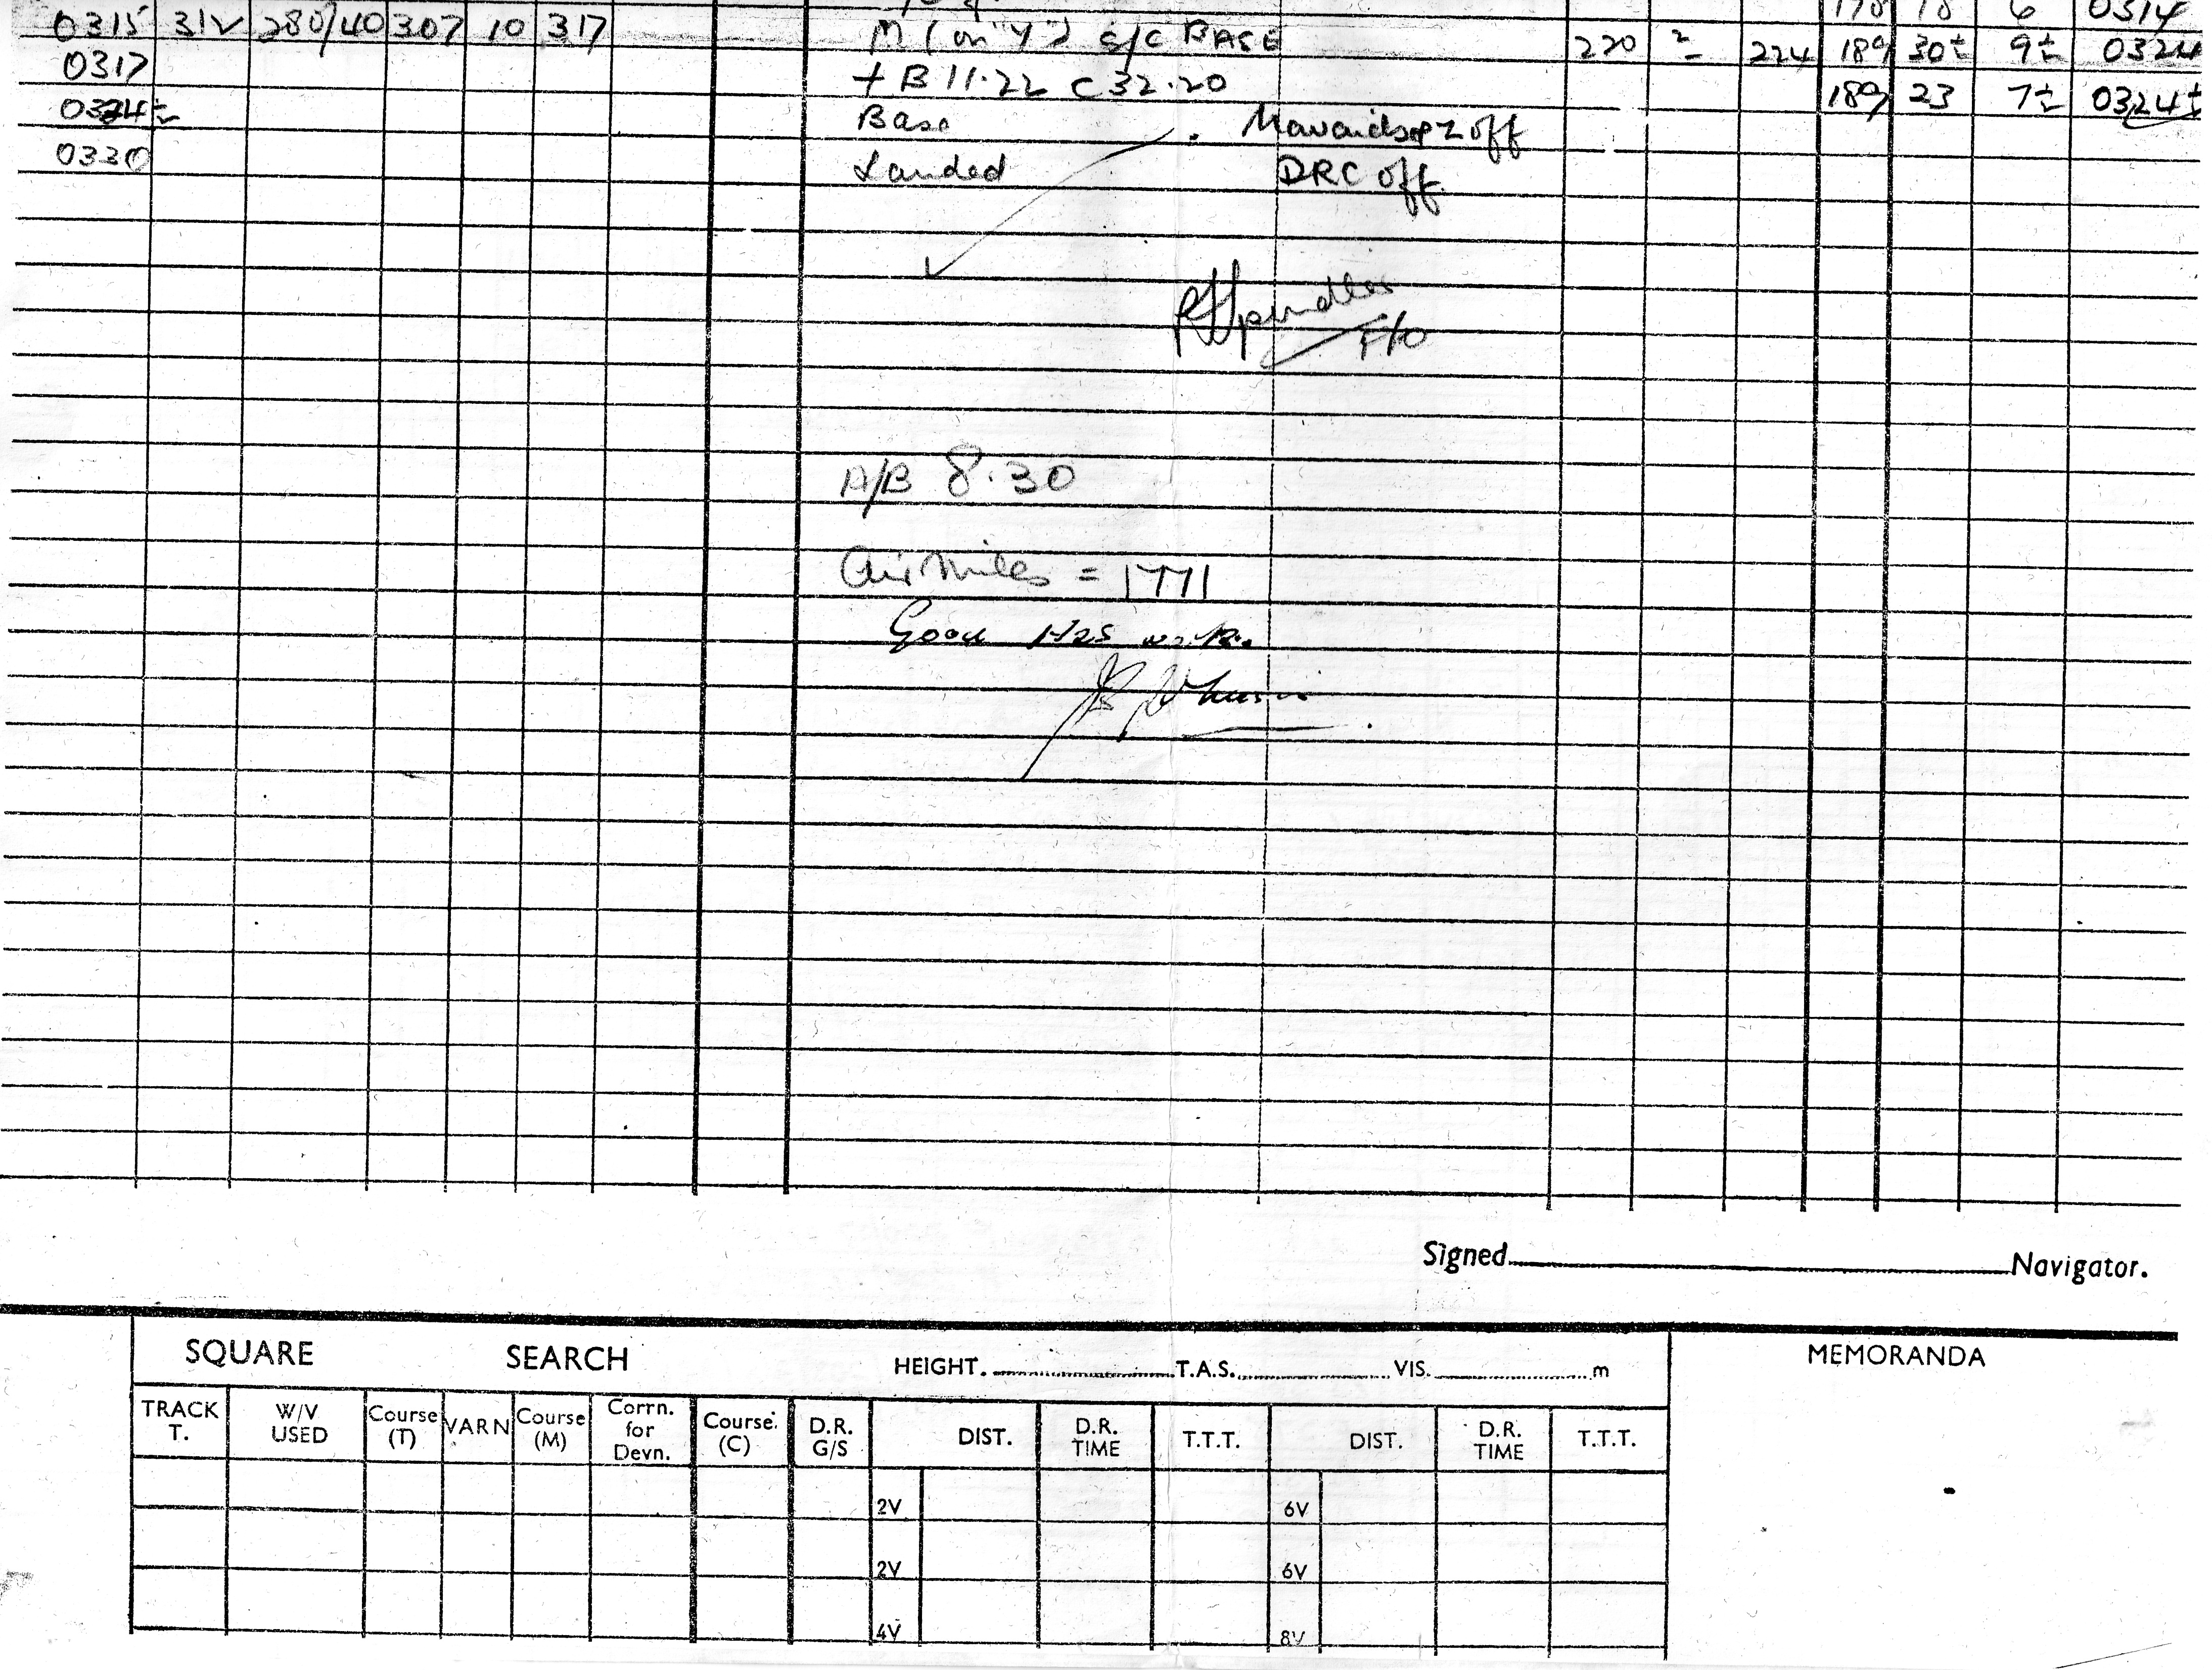 178 18 6 0314
0315 312 280/40 307 10 317 M (on "Y") S/C BASE 220 224 189 30½ 9½ 0324
0317 + B 11.22 C 32.20 189 23 7½ 0324½
0324½ Base off
0330 Landed DRC off
F/O
A/B 8.30
Air Miles = 1771
Good H2S work.
Signed Navigator.
SQUARE SEARCH HEIGHT. T.A.S. VIS. m MEMORANDA
TRACK T. W/V USED Course (T) VARN Course (M) Corrn. for Devn. Course. (C) D.R. G/S DIST. D.R. TIME T.T.T. DIST. D.R. TIME T.T.T.
2V 6V
2V 6V
4V 8V